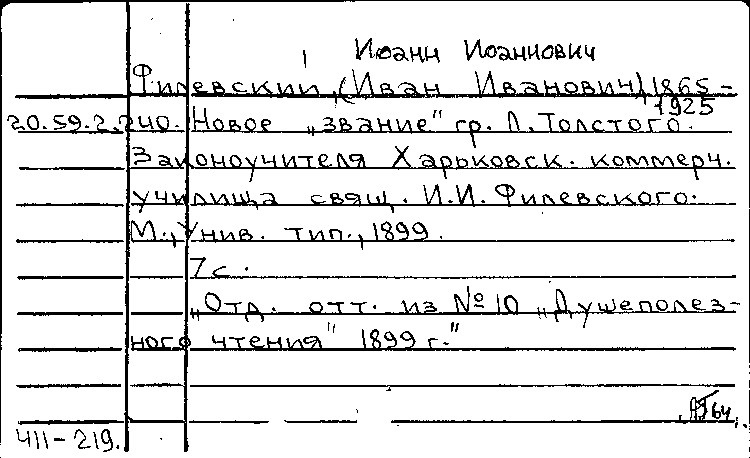 Иоанн Иоаннович
Филевский, (Иван Иванович) 1865-
1925
20.59.2.240. Новое „звание" гр. Л. Толстого.
Законоучителя Харьковск. коммерч.
училища свящ. И.И. Филевского.
М., Унив. тип., 1899.
7 с.
„Отд. отт. из № 10 „Душеполез-
ного чтения" 1899 г."
64
Ч11-219.